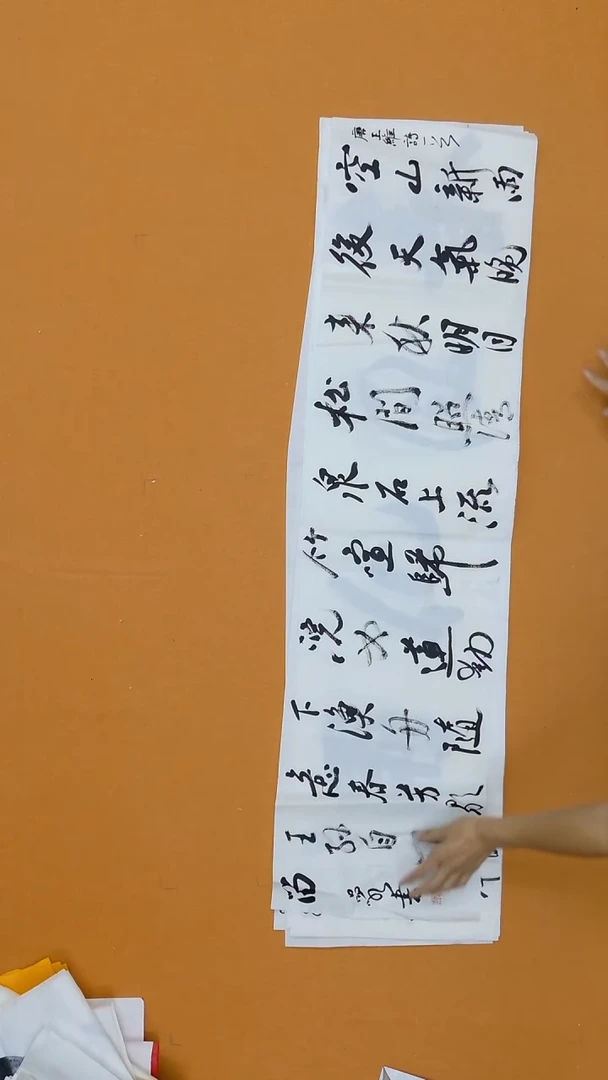 唐王維詩一首
空山新雨
後天氣晚
来秋明月
松間照清
泉石上流
竹喧歸
浣女蓮動
下漁舟随
意春芳歇
王孫自
留